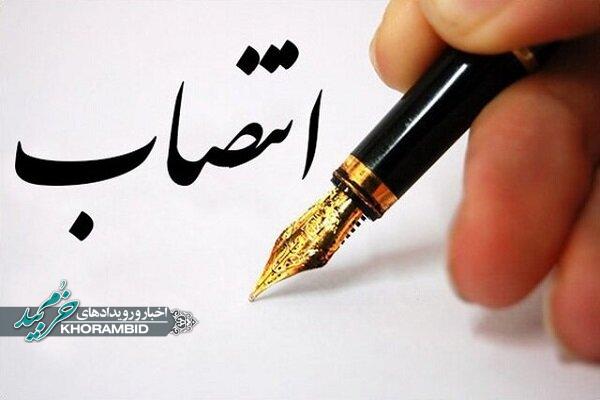 انتصاب
اخبار و رویدادهای
خرمبید
KHORAMBID